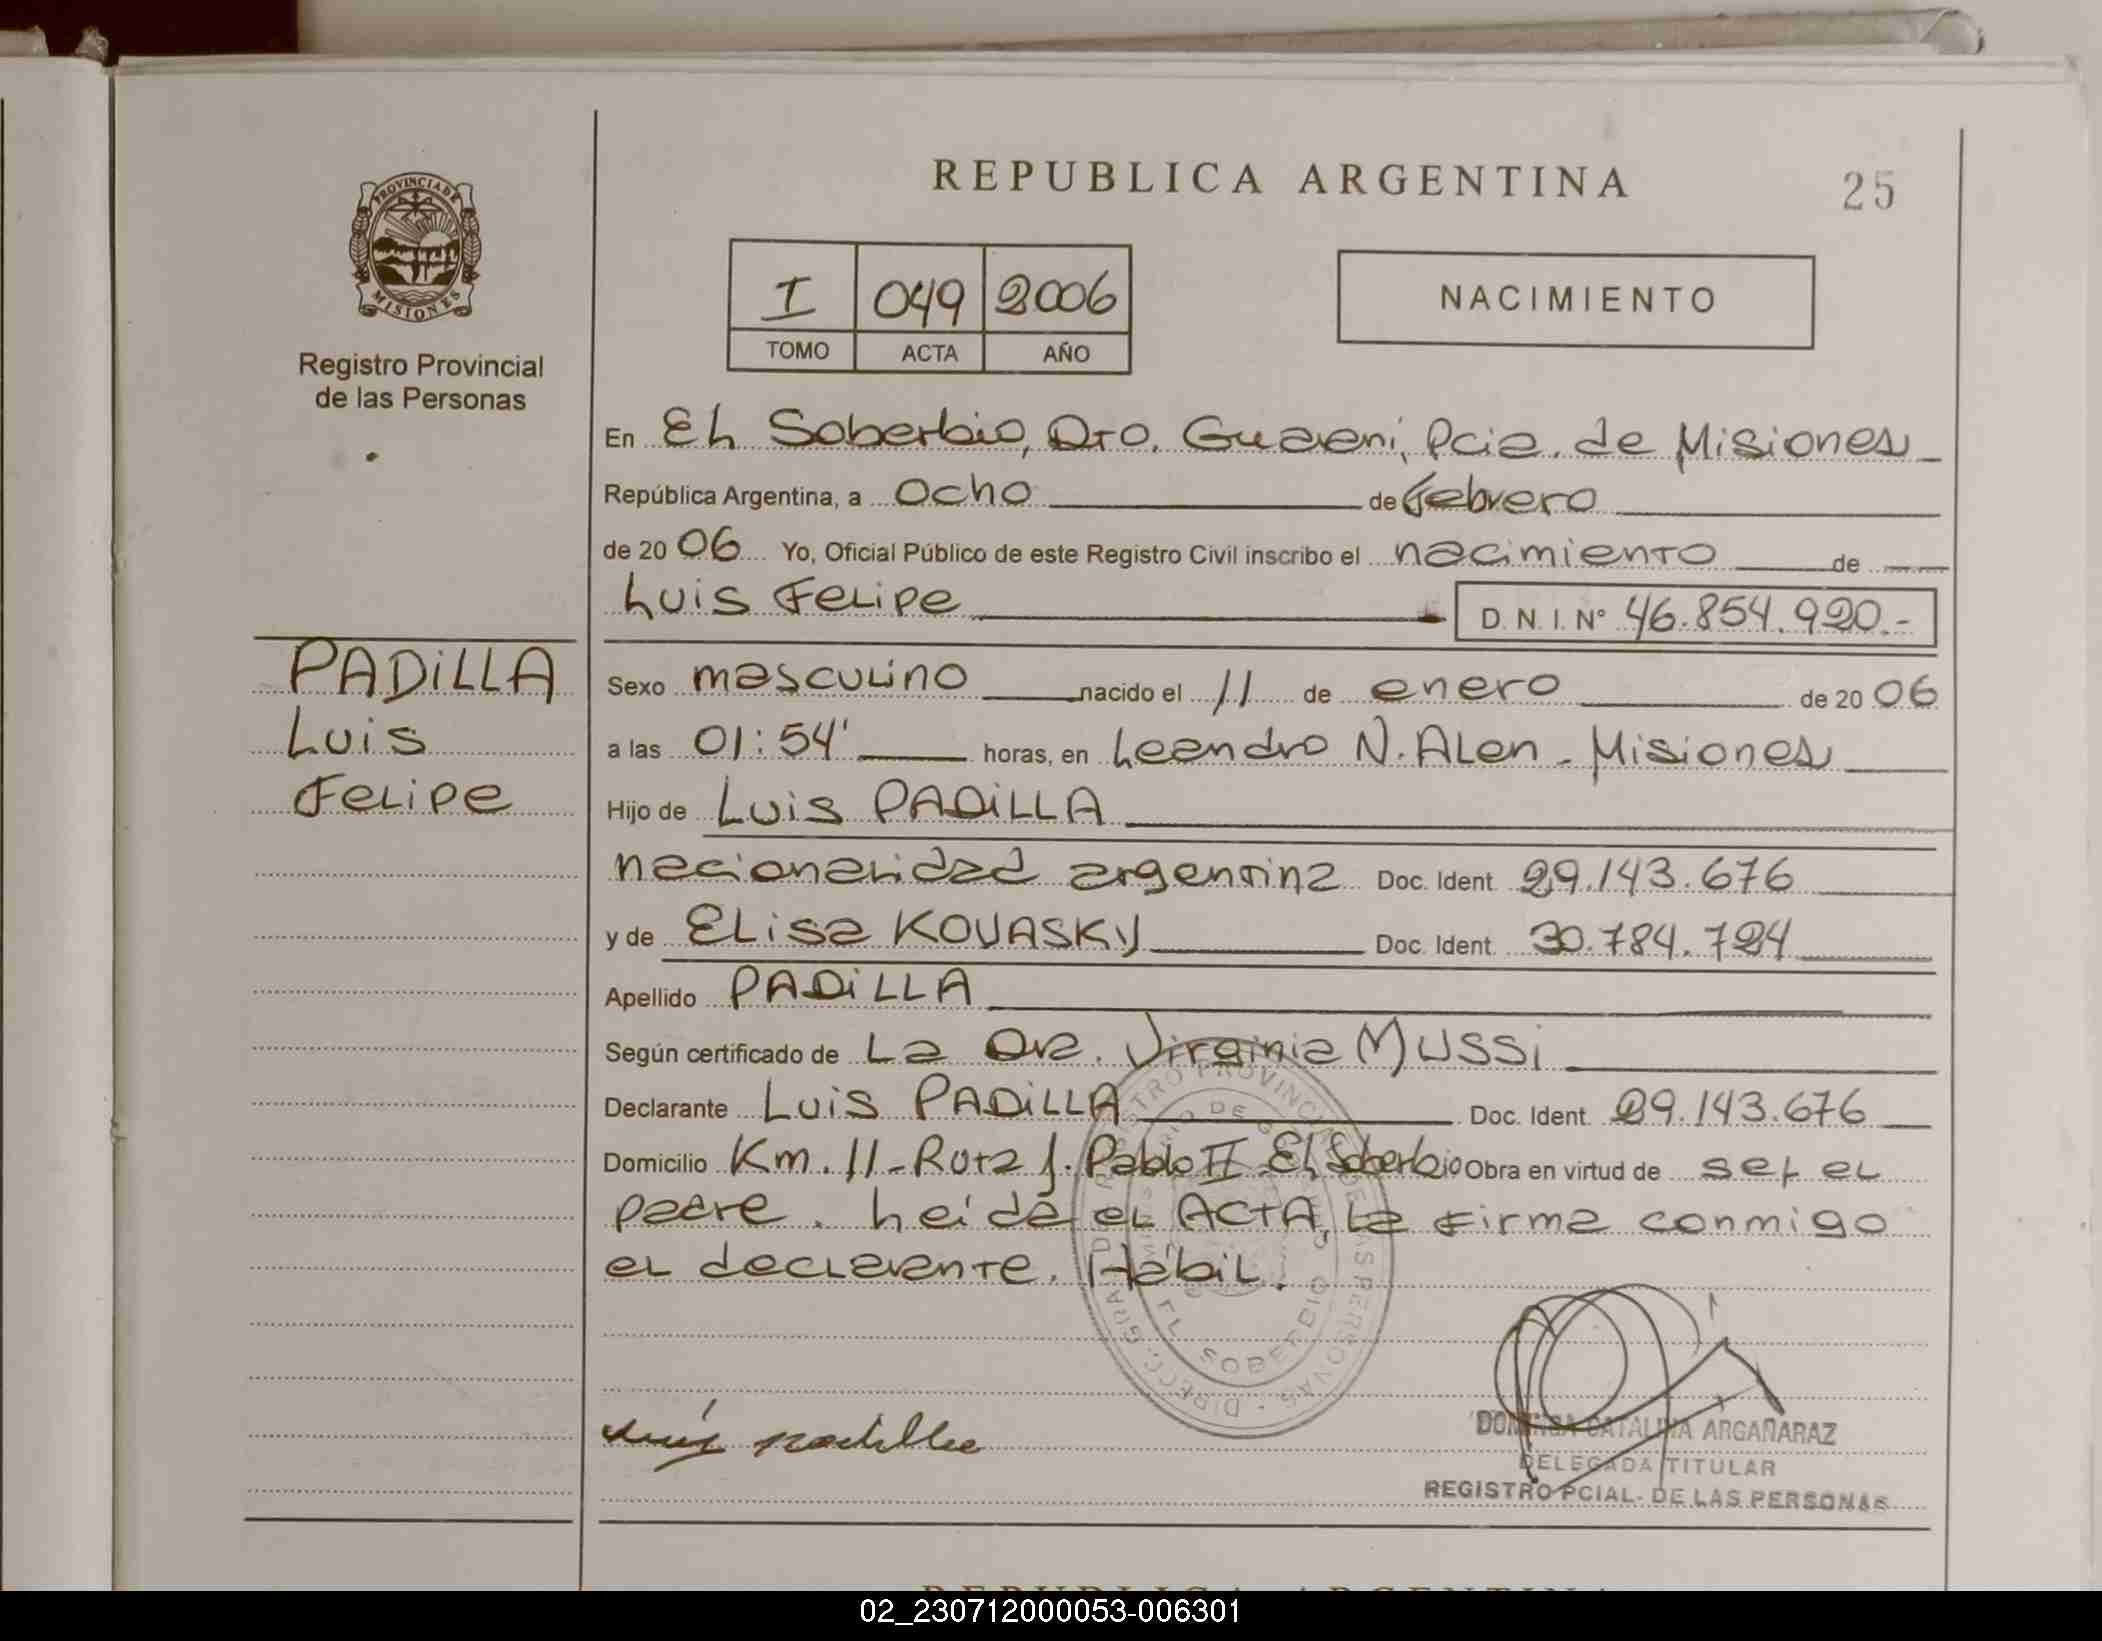 REPUBLICA ARGENTINA
25
PROVINCIA DE
MISIONES
Registro Provincial
de las Personas
I 049 2006
TOMO ACTA AÑO
NACIMIENTO
En El Soberbio, Dto. Guaraní, Pcia. de Misiones
República Argentina, a ocho de febrero
de 2006 Yo, Oficial Público de este Registro Civil inscribo el nacimiento de
Luis Felipe D. N. I. Nº 46.854.920.-
PADiLLA
Luis
Felipe
Sexo masculino nacido el 11 de enero de 2006
a las 01:54' horas, en Leandro N. Alen - Misiones
Hijo de Luis PADiLLA
nacionalidad argentina Doc. Ident. 29.143.676
y de Elisa KOVASKY Doc. Ident. 30.784.724
Apellido PADiLLA
Según certificado de La Dra. Virginia MUSSi
Declarante Luis PADiLLA Doc. Ident. 29.143.676
Domicilio Km. 11 - Ruta J. Pablo II - El Soberbio Obra en virtud de ser el
padre. Leída el ACTA, la firma conmigo
el declarante. Hábil.
EL SOBERBIO
Luis Padilla
DOMINGA CATALINA ARGAÑARAZ
DELEGADA TITULAR
REGISTRO PCIAL. DE LAS PERSONAS
REPUBLICA ARGENTINA
02_230712000053-006301